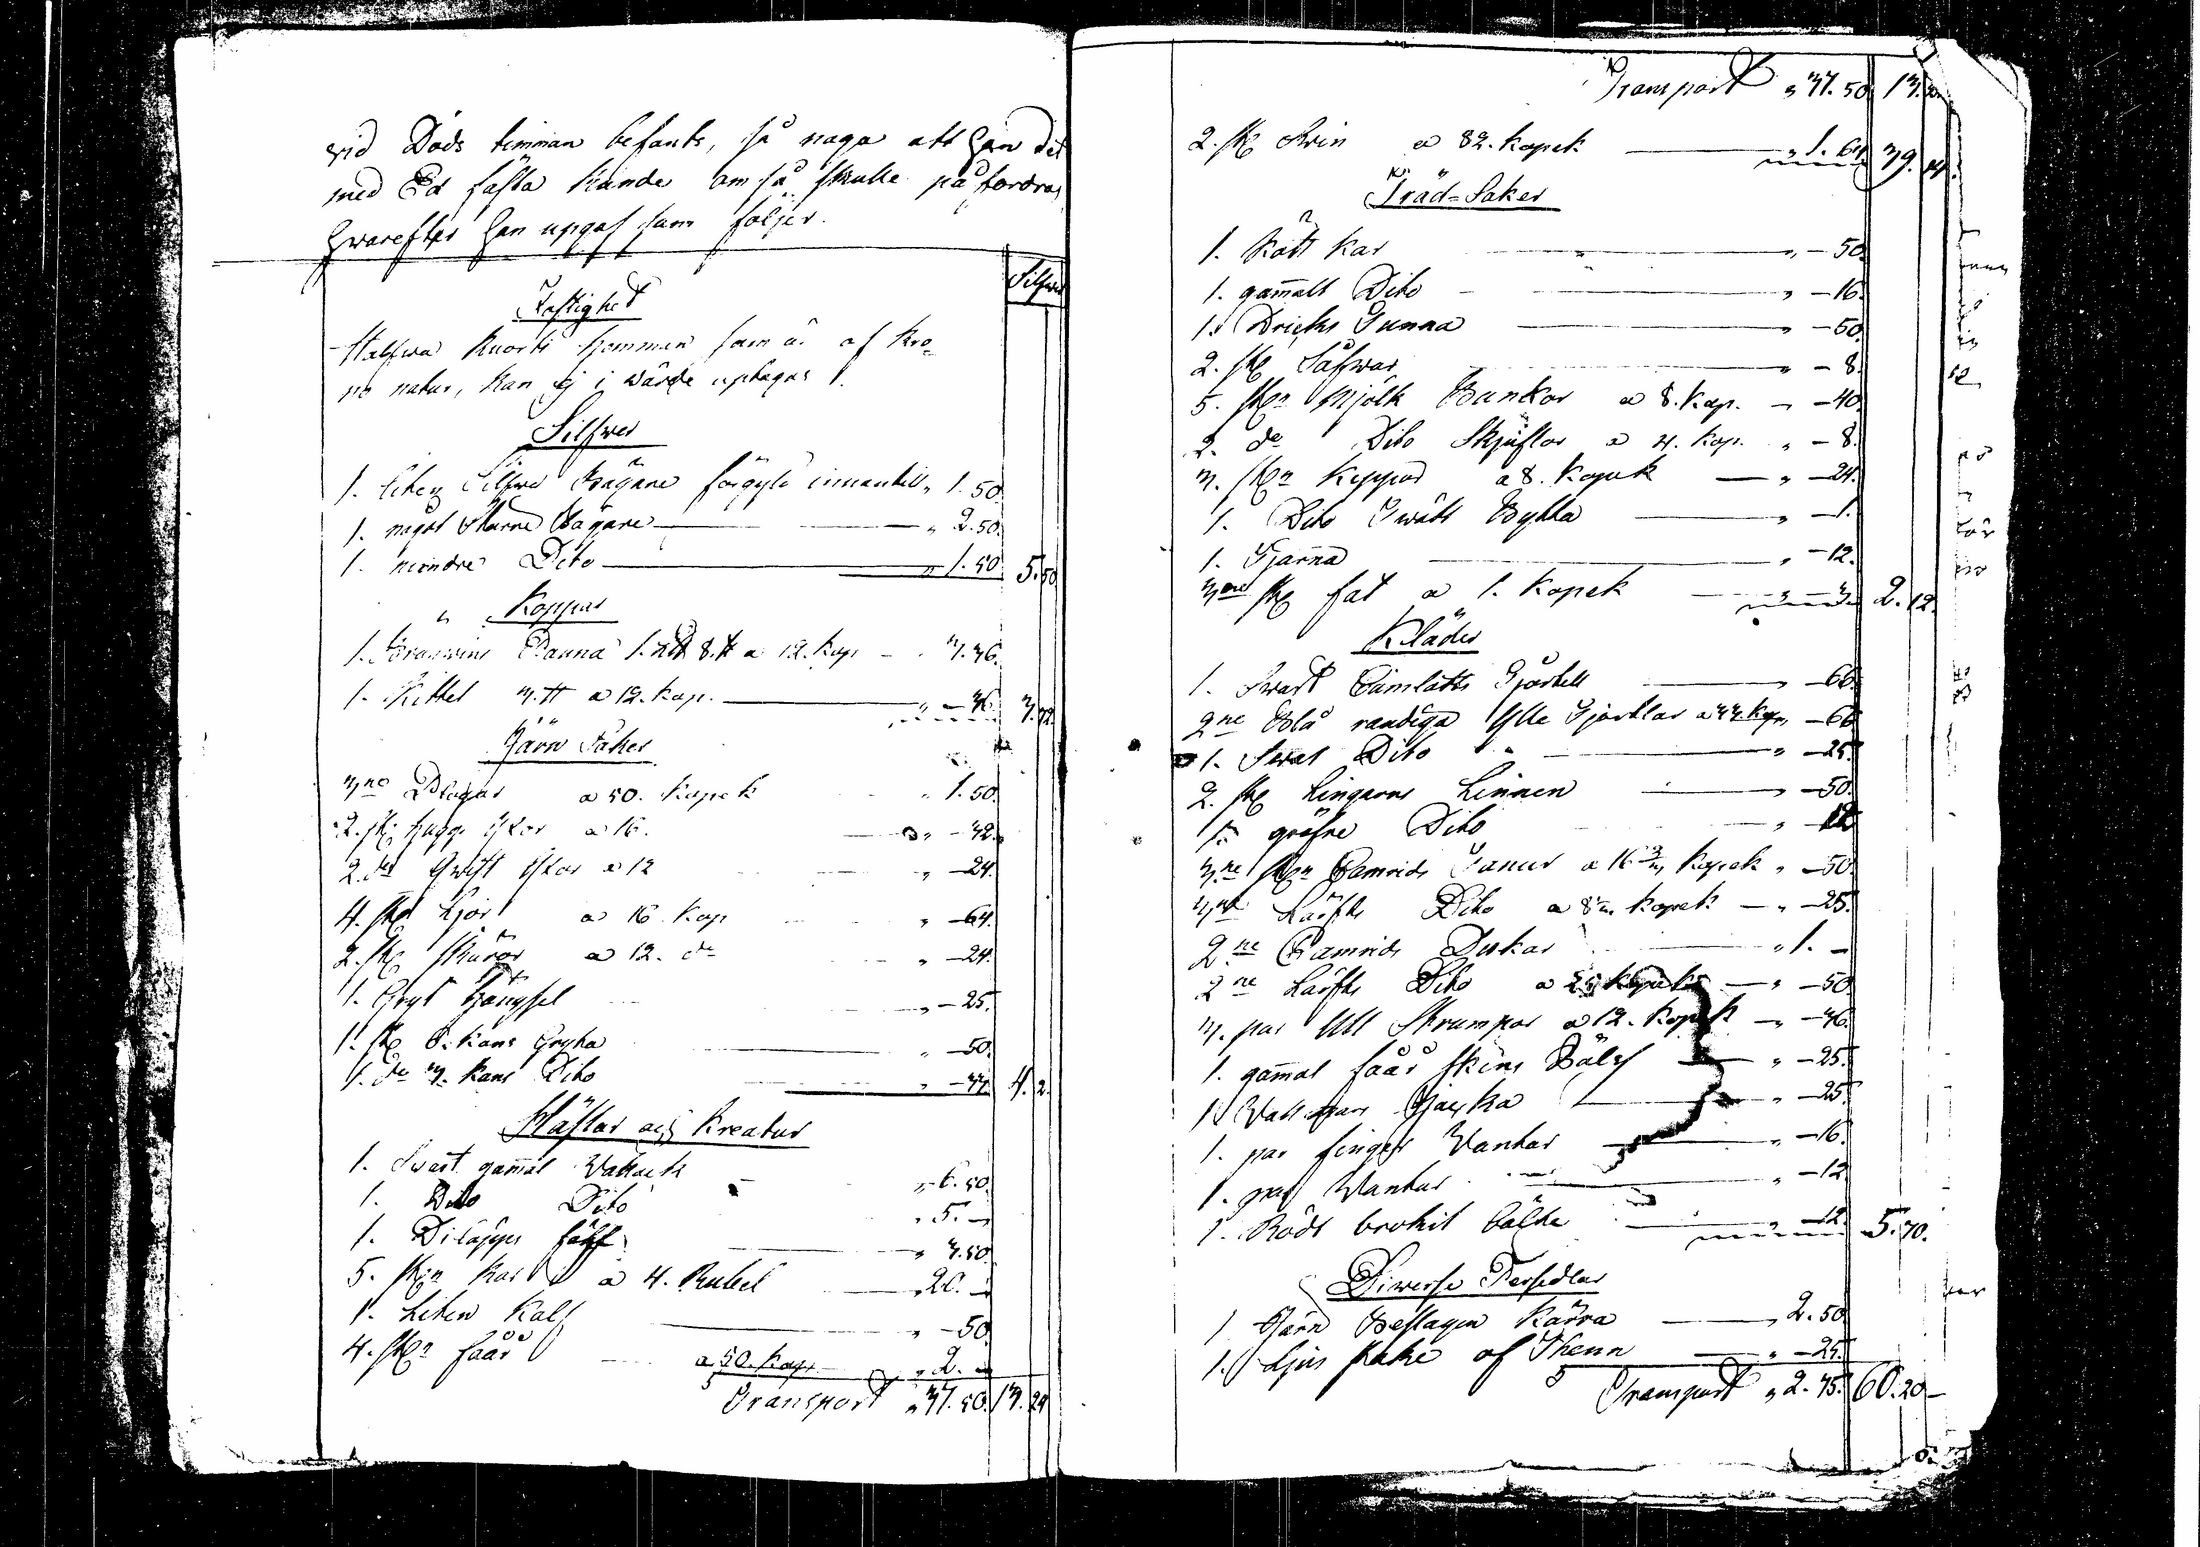 vid Döds timman befants, så noga att han det
med Ed fästa kunde om så skulle på fordras
hwarefter han upgaf som följer.
Silfwer
Fastighet
Halfwa Kuorti hemman som är af Kro-
no natur, kan ej i wärde uptagas.
Silfwer
1. liten Silfwer Bägare förgylt innantill „ 1.50.
1. något större Bägare „ 2.50.
1. mindre Dito „ 1.50 5.50
Koppar
1. Bränwins Panna a 12. kop 3.36.
1. Kittel 3. ℔ a 12. kop. „ -36. 3.72.
Järn Saker
3ne Plogar a 50. kopek „ 1.50.
2. st. hugg yxor a 16. „ -32.
2. do yxor a 12 „ -24.
4. st. Ljor a 16 kop „ -64.
2. st. Skäror a 12. do „ -24.
1. Gryt hängsel „ -25.
1. st. kans Gryta „ -50.
1. do 3. kans Dito „ -33. 4.2.
Hästar och Kreatur
1. Swart gam̄al Wallack „ 6.50.
1. Dito Dito „ 5. -
1. „ 3.50.
5. st:n Kor a 4. Rubel „ 20. -
1. Liten Kalf „ -50.
4. st:n får a 50. kop. „ 2. -
Transport „ 37.50. 13.24
Transport „ 37.50. 13.
2. st. Swin a 82. kopek „ 1.64 39.14.
Träd-Saker
1. Kött Kar „ -50.
1. gam̄alt Dito „ -16.
1. Dricks Tunna „ -50.
2. st. Såfwar „ -8.
5. st:n Mjölk Bunkar a 8. kop. „ -40.
2. do Dito a 4. kop. „ -8.
3. st:n Keppor a 8. kopek „ -24.
1. Dito Twätt Bytta „ -1.
1. Tjärna „ -12.
3ne st. fat a 1. kopek „ -3. 2.12.
Kläder
1. Swart Camlotts Gjortell „ -66.
2ne Blå randiga Ylle Gjortlar a 33. kop. „ -66
1. Swat Dito „ -25.
2. st. Lingarns Linnen „ -50.
1. gröfre Dito „ -12
3ne st:n Camrids a 16 2/3 kopek „ -50.
3ne Lärfts Dito a kopek „ -25.
2ne Camrids Dukar „ 1. -
2ne Lärfts Dito a 25 kopek „ -50
3. par Ull Strumpor a 12. kopek „ -36.
1. gam̄al fåår skins Päls „ -25.
1. Tjacka „ -25
1. par finger Wantar „ -16.
1. par Wantar „ -12
1. Rödt brokit bälte „ -12. 5.70.
Diwerse Persedlar
1 Järn Beslagen Kärra „ 2.50.
1. Ljus stake af Thenn „ -25.
Transport „ 2.75. 60.20-